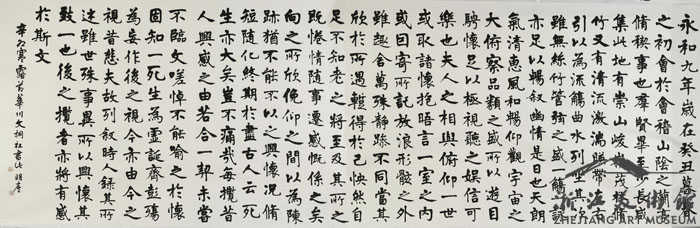 永和九年歲在癸丑暮春
之初會於會稽山陰之蘭亭
脩稧事也群賢畢至少長咸
集此地有崇山峻領茂林脩
竹又有清流激湍暎帶左右
引以為流觴曲水列坐其次
雖無絲竹管弦之盛一觴一詠
亦足以暢叙幽情是日也天朗
氣清惠風和暢仰觀宇宙之
大俯察品類之盛所以遊目
騁懷足以極視聽之娛信可
樂也夫人之相與俯仰一世
或取諸懷抱晤言一室之內
或因寄所託放浪形骸之外
雖趣舍萬殊靜躁不同當其
欣於所遇暫得於己怏然自
足不知老之將至及其所之
既惓情隨事遷感慨係之矣
向之所欣俛仰之間以為陳
跡猶不能不以之興懷況脩
短隨化終期於盡古人云死
生亦大矣豈不痛哉每攬昔
人興感之由若合一契未嘗
不臨文嗟悼不能喻之於懷
固知一死生為虛誕齊彭殤
為妄作後之視今亦由今之
視昔悲夫故列叙時人錄其所
述雖世殊事異所以興懷其
致一也後之攬者亦將有感
於斯文
辛卯寒露
浙江美術館
ZHEJIANG ART MUSEUM